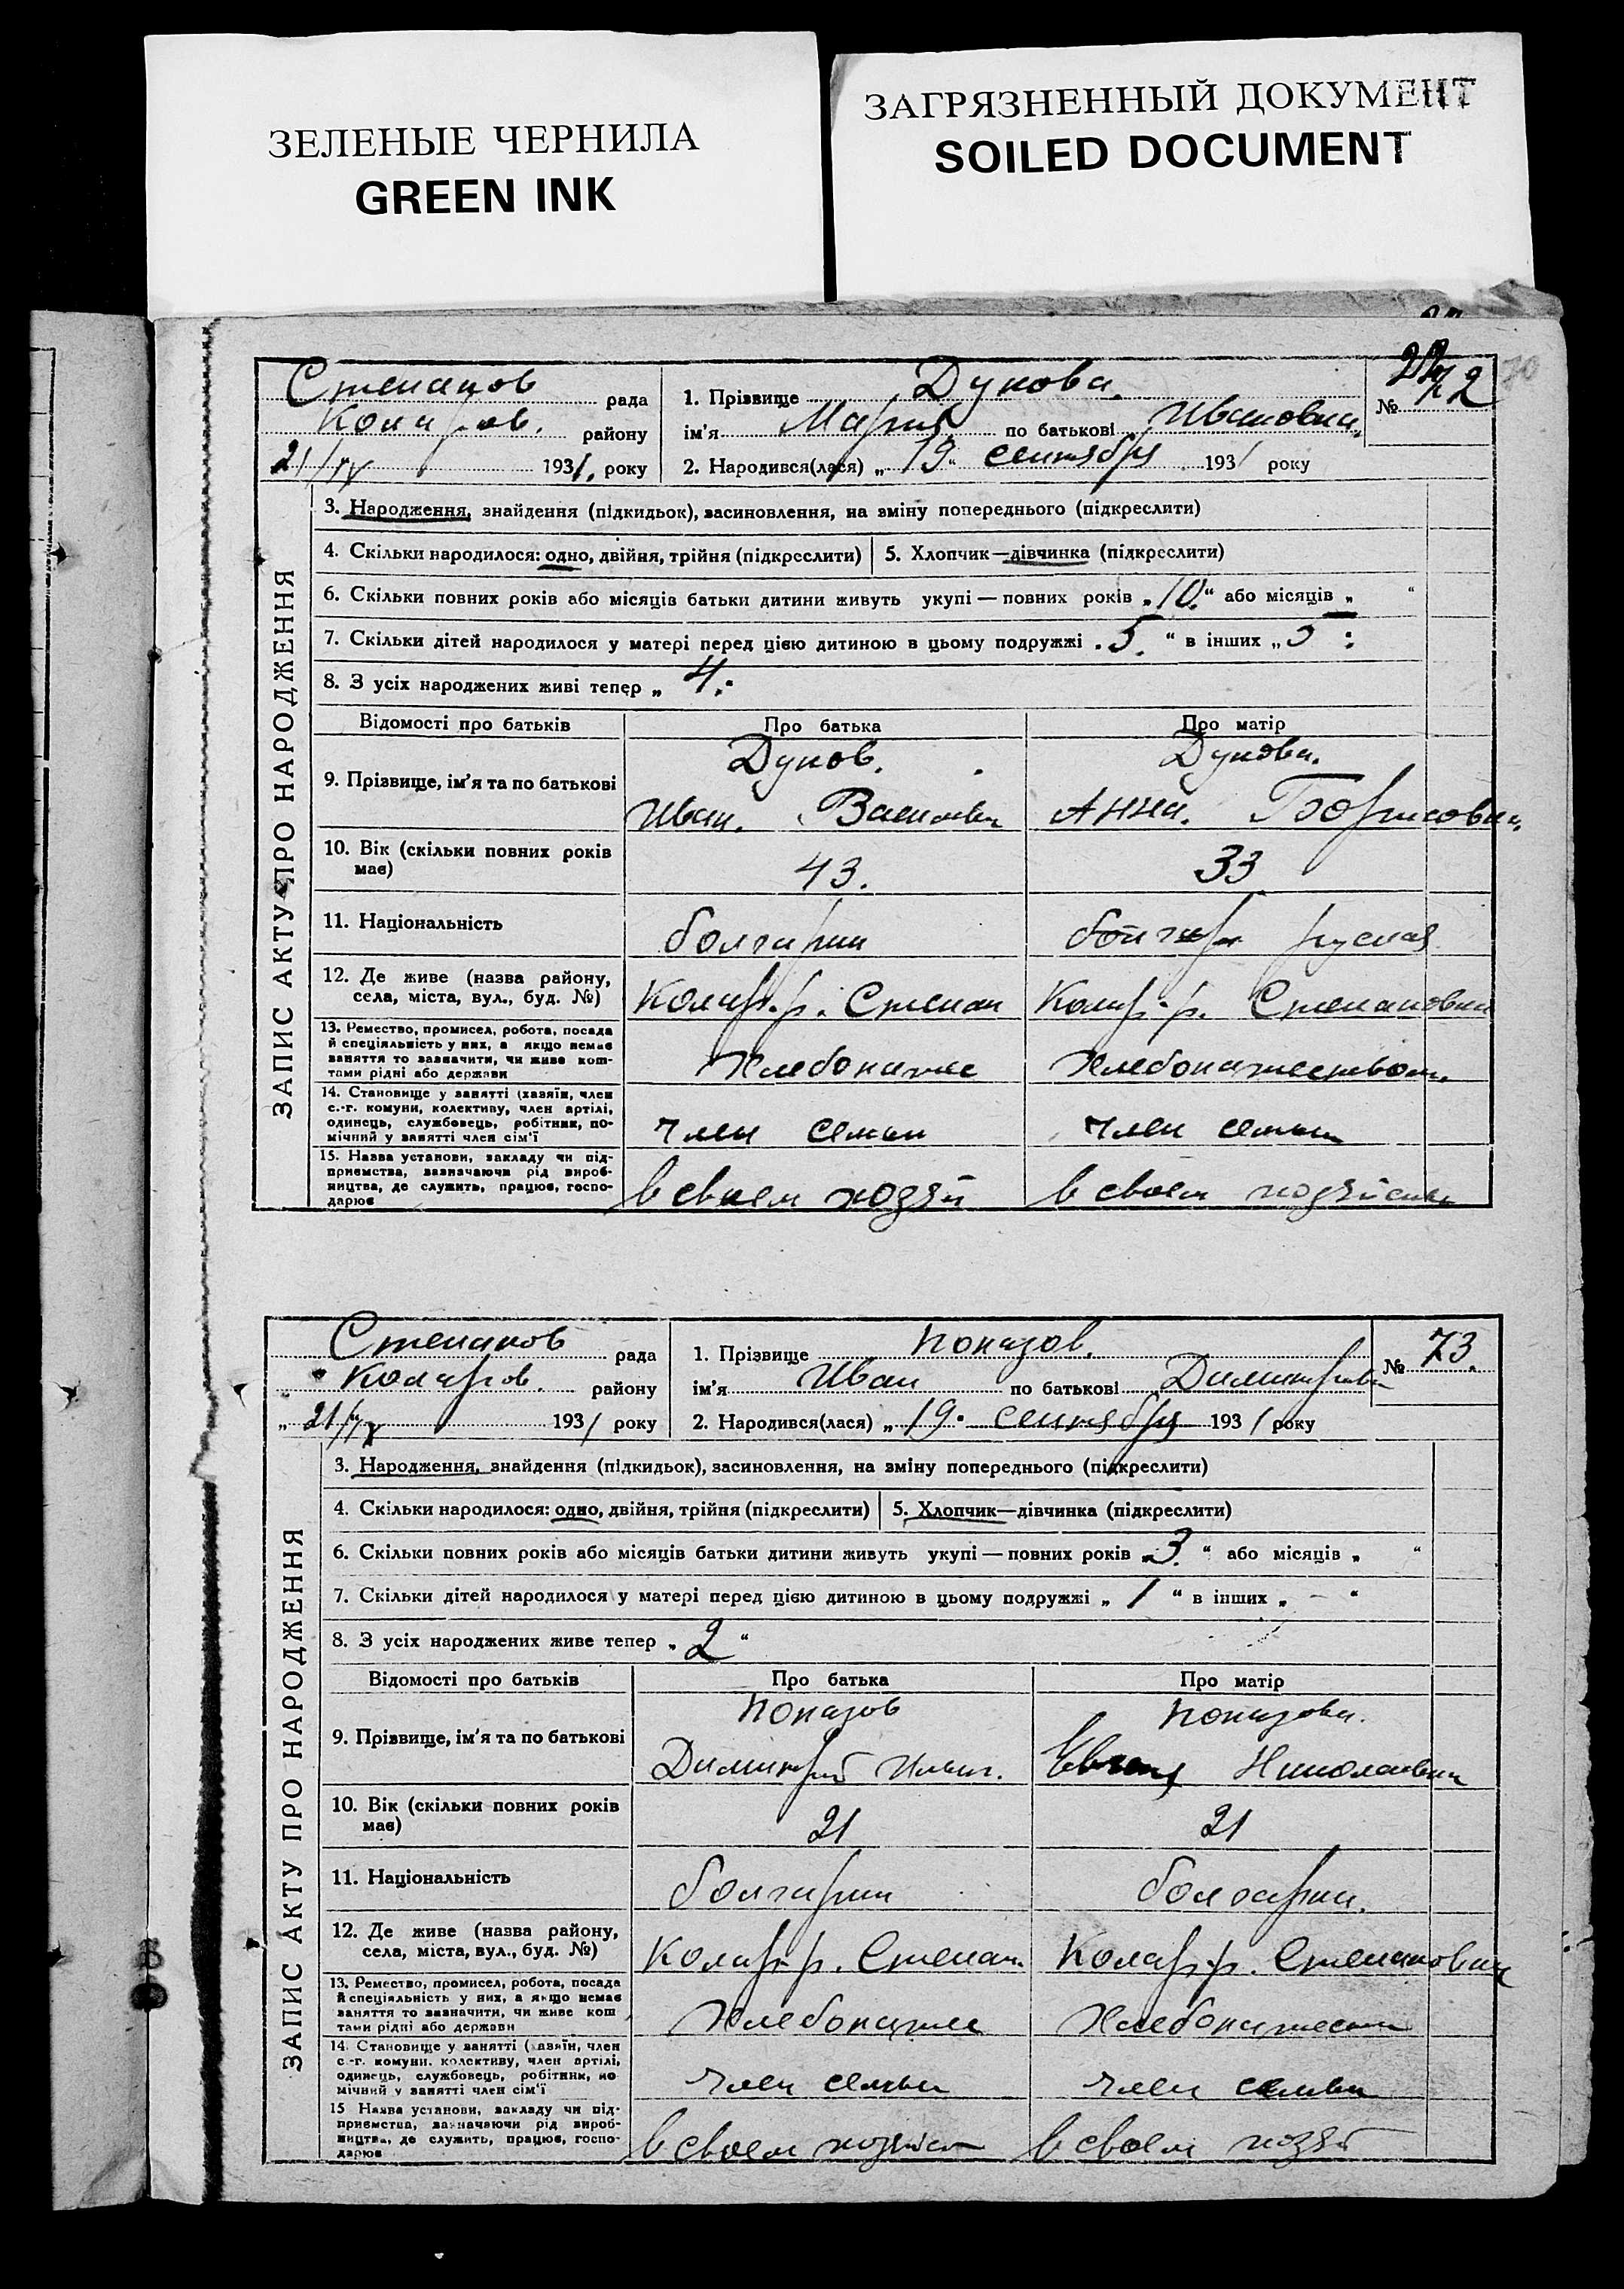 ЗЕЛЕНЫЕ ЧЕРНИЛА
GREEN INK
ЗАГРЯЗНЕННЫЙ ДОКУМЕНТ
SOILED DOCUMENT
Степанов рада
Коларов. району
21/IX 1931. року
1. Прізвище Дукова.
ім'я Мария по батькові Ивановна.
2. Народився(лася) „19“ сентября 1931 року
№ 72
70
ЗАПИС АКТУ ПРО НАРОДЖЕННЯ
3. Народження, знайдення (підкидьок), засиновлення, на зміну попереднього (підкреслити)
4. Скільки народилося: одно, двійня, трійня (підкреслити) 5. Хлопчик—дівчинка (підкреслити)
6. Скільки повних років або місяців батьки дитини живуть укупі — повних років „10.“ або місяців „ “
7. Скільки дітей народилося у матері перед цією дитиною в цьому подружжі „5.“ в інших „
8. З усіх народжених живі тепер „4.
Відомості про батьків Про батька Про матір
9. Прізвище, ім'я та по батькові
Дуков. Дукова.
Иван. Василиев Анна. Борисовна.
10. Вік (скільки повних років має) 43. 33
11. Національність болгарин болгар русская
12. Де живе (назва району, села, міста, вул., буд. №) Колар. р. Степан Колар. р. Степановка
13. Ремество, промисел, робота, посада й спеціяльність у них, а якщо немає заняття то зазначити, чи живе коштами рідні або держави Хлебопашес Хлебопашеством.
14. Становище у занятті (хазяїн, член с.-г. комуни, колективу, член артілі, одинець, службовець, робітник, помічний у занятті член сім'ї член семьи член семьи
15. Назва установи, закладу чи підприємства, зазначаючи рід виробництва, де служить, працює, господарює в своем хозяй в своем хозяйстве
Степанов рада
Коларов. району
„21/IX 1931 року
1. Прізвище Попазов.
ім'я Иван по батькові Димитриев
2. Народився(лася) „19. сентября 1931 року
№ 73.
ЗАПИС АКТУ ПРО НАРОДЖЕННЯ
3. Народження, знайдення (підкидьок), засиновлення, на зміну попереднього (підкреслити)
4. Скільки народилося: одно, двійня, трійня (підкреслити) 5. Хлопчик—дівчинка (підкреслити)
6. Скільки повних років або місяців батьки дитини живуть укупі — повних років „3.“ або місяців „ “
7. Скільки дітей народилося у матері перед цією дитиною в цьому подружжі „1“ в інших „ – “
8. З усіх народжених живе тепер „2“
Відомості про батьків Про батька Про матір
9. Прізвище, ім'я та по батькові
Попазов Попазова.
Димитрий Ильич. Николаевна
10. Вік (скільки повних років має) 21 21
11. Національність болгарин болгарка.
12. Де живе (назва району, села, міста, вул., буд. №) Колар. р. Степан. Колар. р. Степановка
13. Ремество, промисел, робота, посада й спеціяльність у них, а якщо немає заняття то зазначити, чи живе коштами рідні або держави Хлебопашес Хлебопашеств
14. Становище у занятті (хазяїн, член с.-г. комуни, колективу, член артілі, одинець, службовець, робітник, помічний у занятті член сім'ї член семьи член семьи
15 Назва установи, закладу чи підприємства, зазначаючи рід виробництва, де служить, працює, господарює в своем хозяйст в своем хозяй